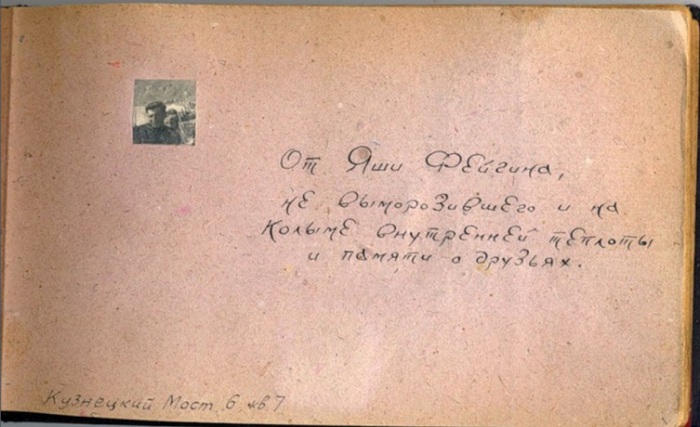 От Яши Фейгина,
не выморозившего и на
Колыме внутренней теплоты
и памяти о друзьях.
Кузнецкий Мост, 6, кв. 7